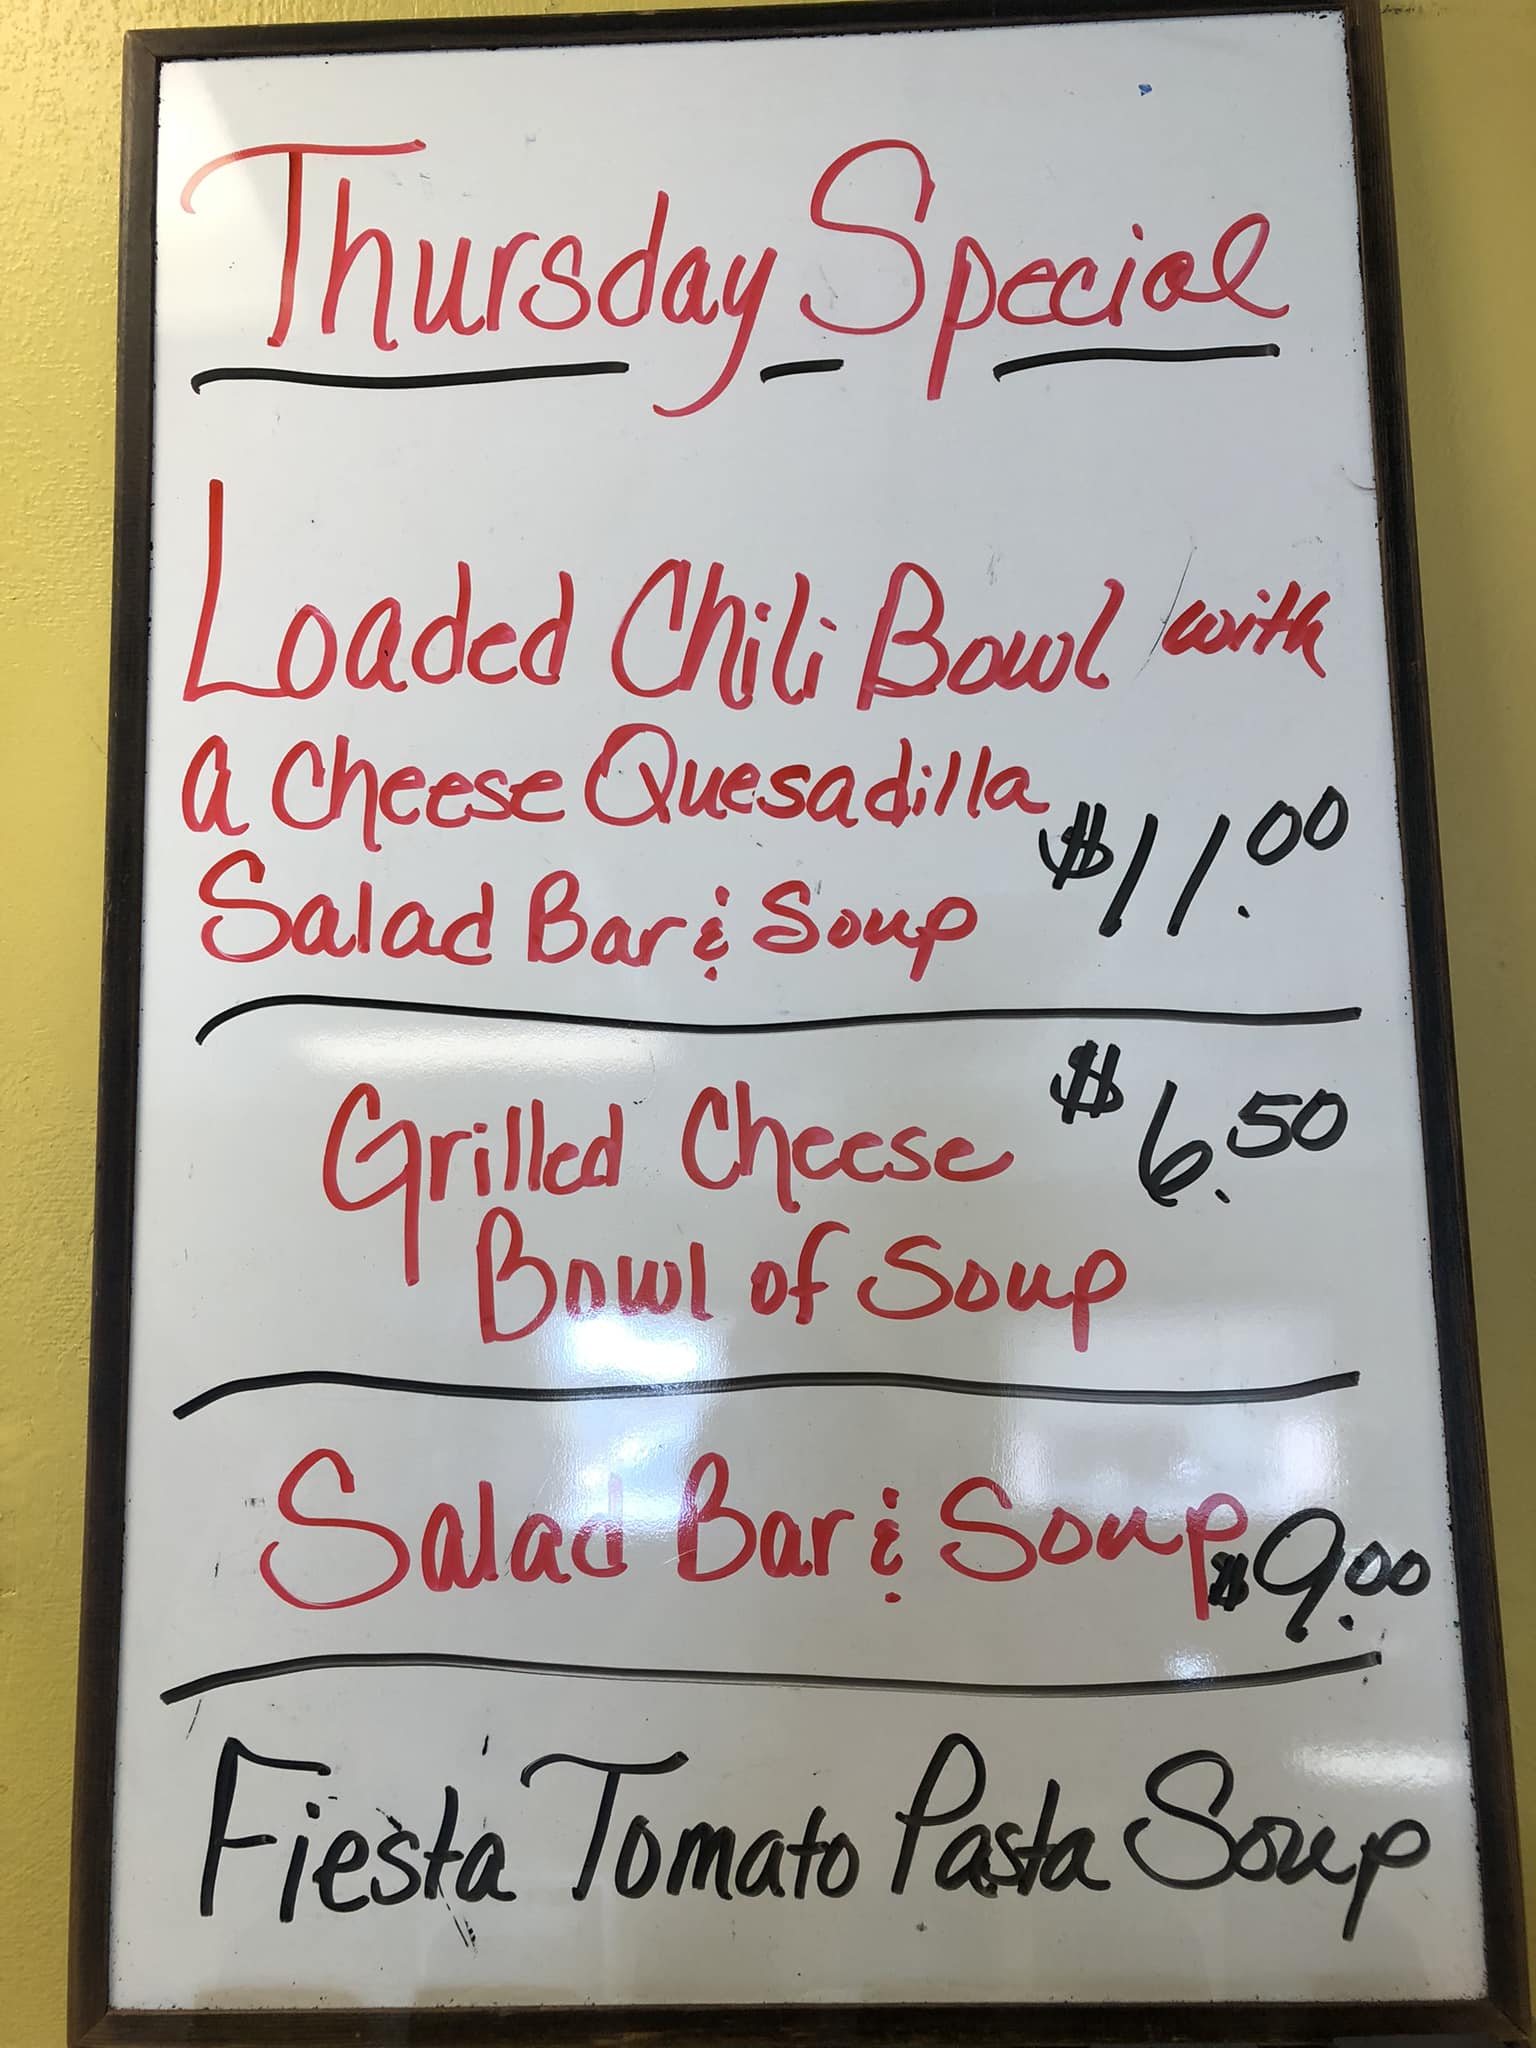 Thursday Special
Loaded Chili Bowl with
a Cheese Quesadilla
Salad Bar & Soup $11.00
Grilled Cheese $6.50
Bowl of Soup
Salad Bar & Soup $9.00
Fiesta Tomato Pasta Soup